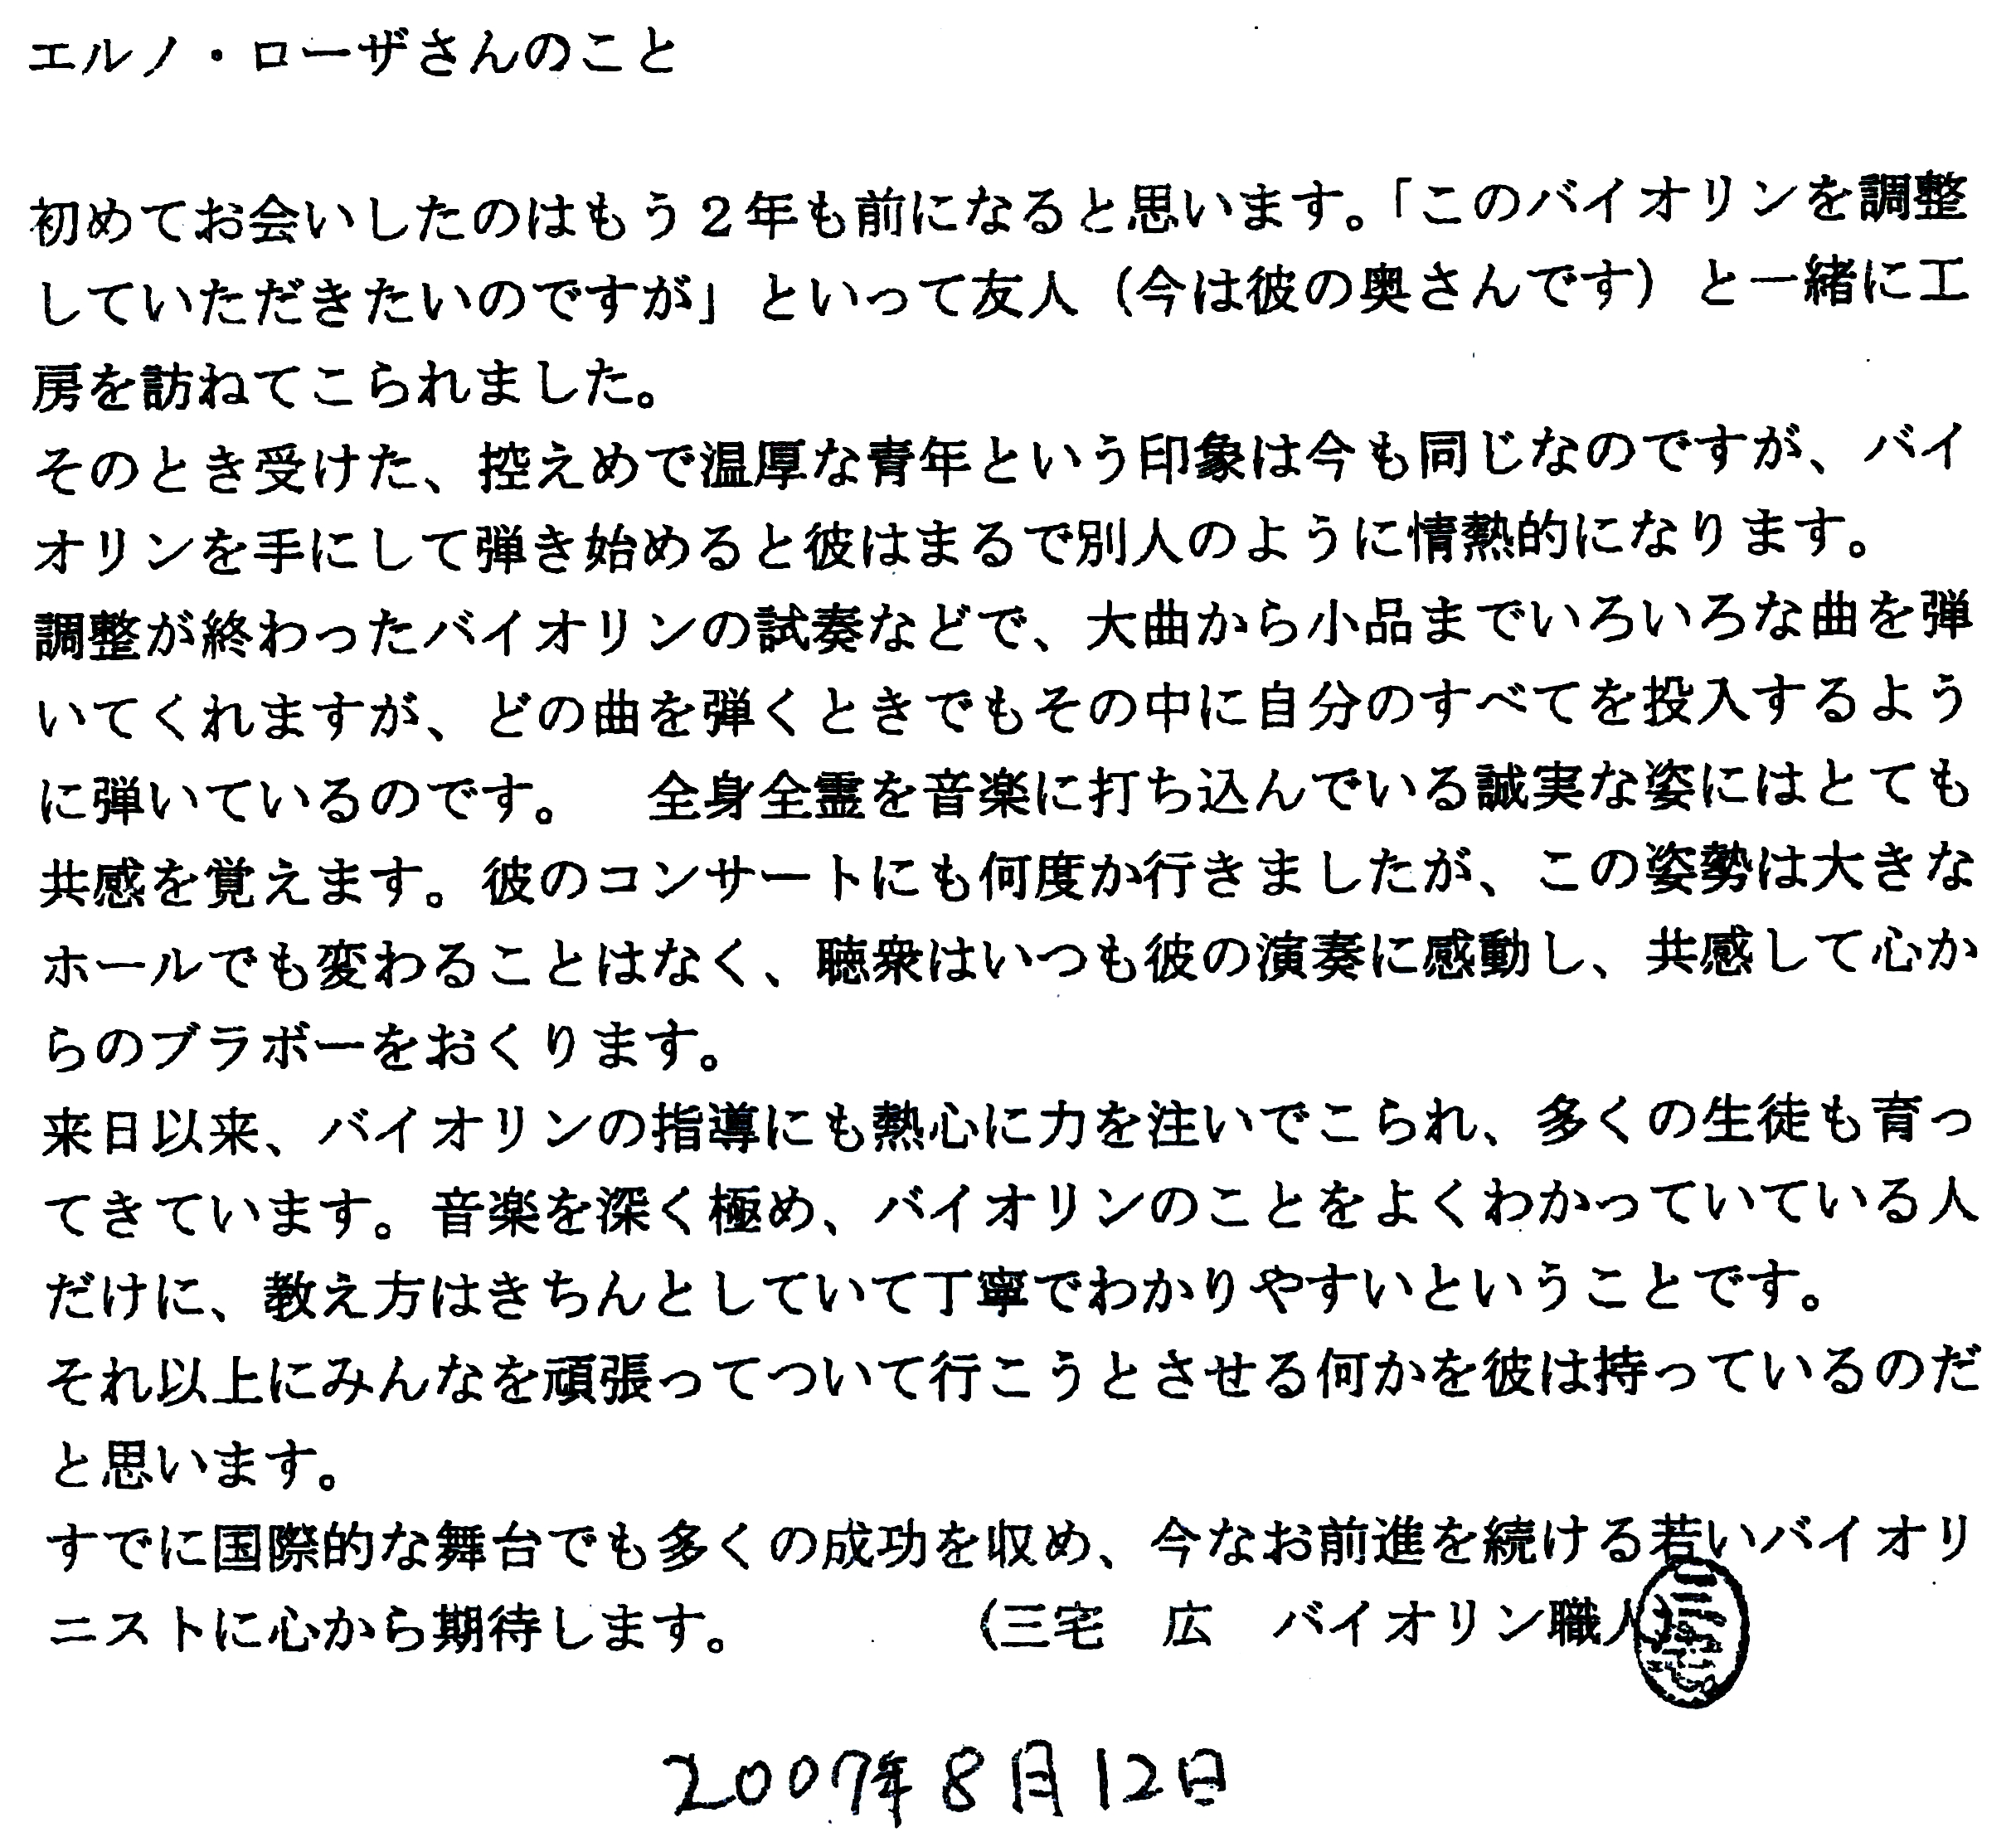 エルノ・ローザさんのこと
初めてお会いしたのはもう２年も前になると思います。「このバイオリンを調整
していただきたいのですが」といって友人（今は彼の奥さんです）と一緒に工
房を訪ねてこられました。
そのとき受けた、控えめで温厚な青年という印象は今も同じなのですが、バイ
オリンを手にして弾き始めると彼はまるで別人のように情熱的になります。
調整が終わったバイオリンの試奏などで、大曲から小品までいろいろな曲を弾
いてくれますが、どの曲を弾くときでもその中に自分のすべてを投入するよう
に弾いているのです。　全身全霊を音楽に打ち込んでいる誠実な姿にはとても
共感を覚えます。彼のコンサートにも何度か行きましたが、この姿勢は大きな
ホールでも変わることはなく、聴衆はいつも彼の演奏に感動し、共感して心か
らのブラボーをおくります。
来日以来、バイオリンの指導にも熱心に力を注いでこられ、多くの生徒も育っ
てきています。音楽を深く極め、バイオリンのことをよくわかっていている人
だけに、教え方はきちんとしていて丁寧でわかりやすいということです。
それ以上にみんなを頑張ってついて行こうとさせる何かを彼は持っているのだ
と思います。
すでに国際的な舞台でも多くの成功を収め、今なお前進を続ける若いバイオリ
ニストに心から期待します。　　　　（三宅　広　バイオリン職人）
2007年8月12日